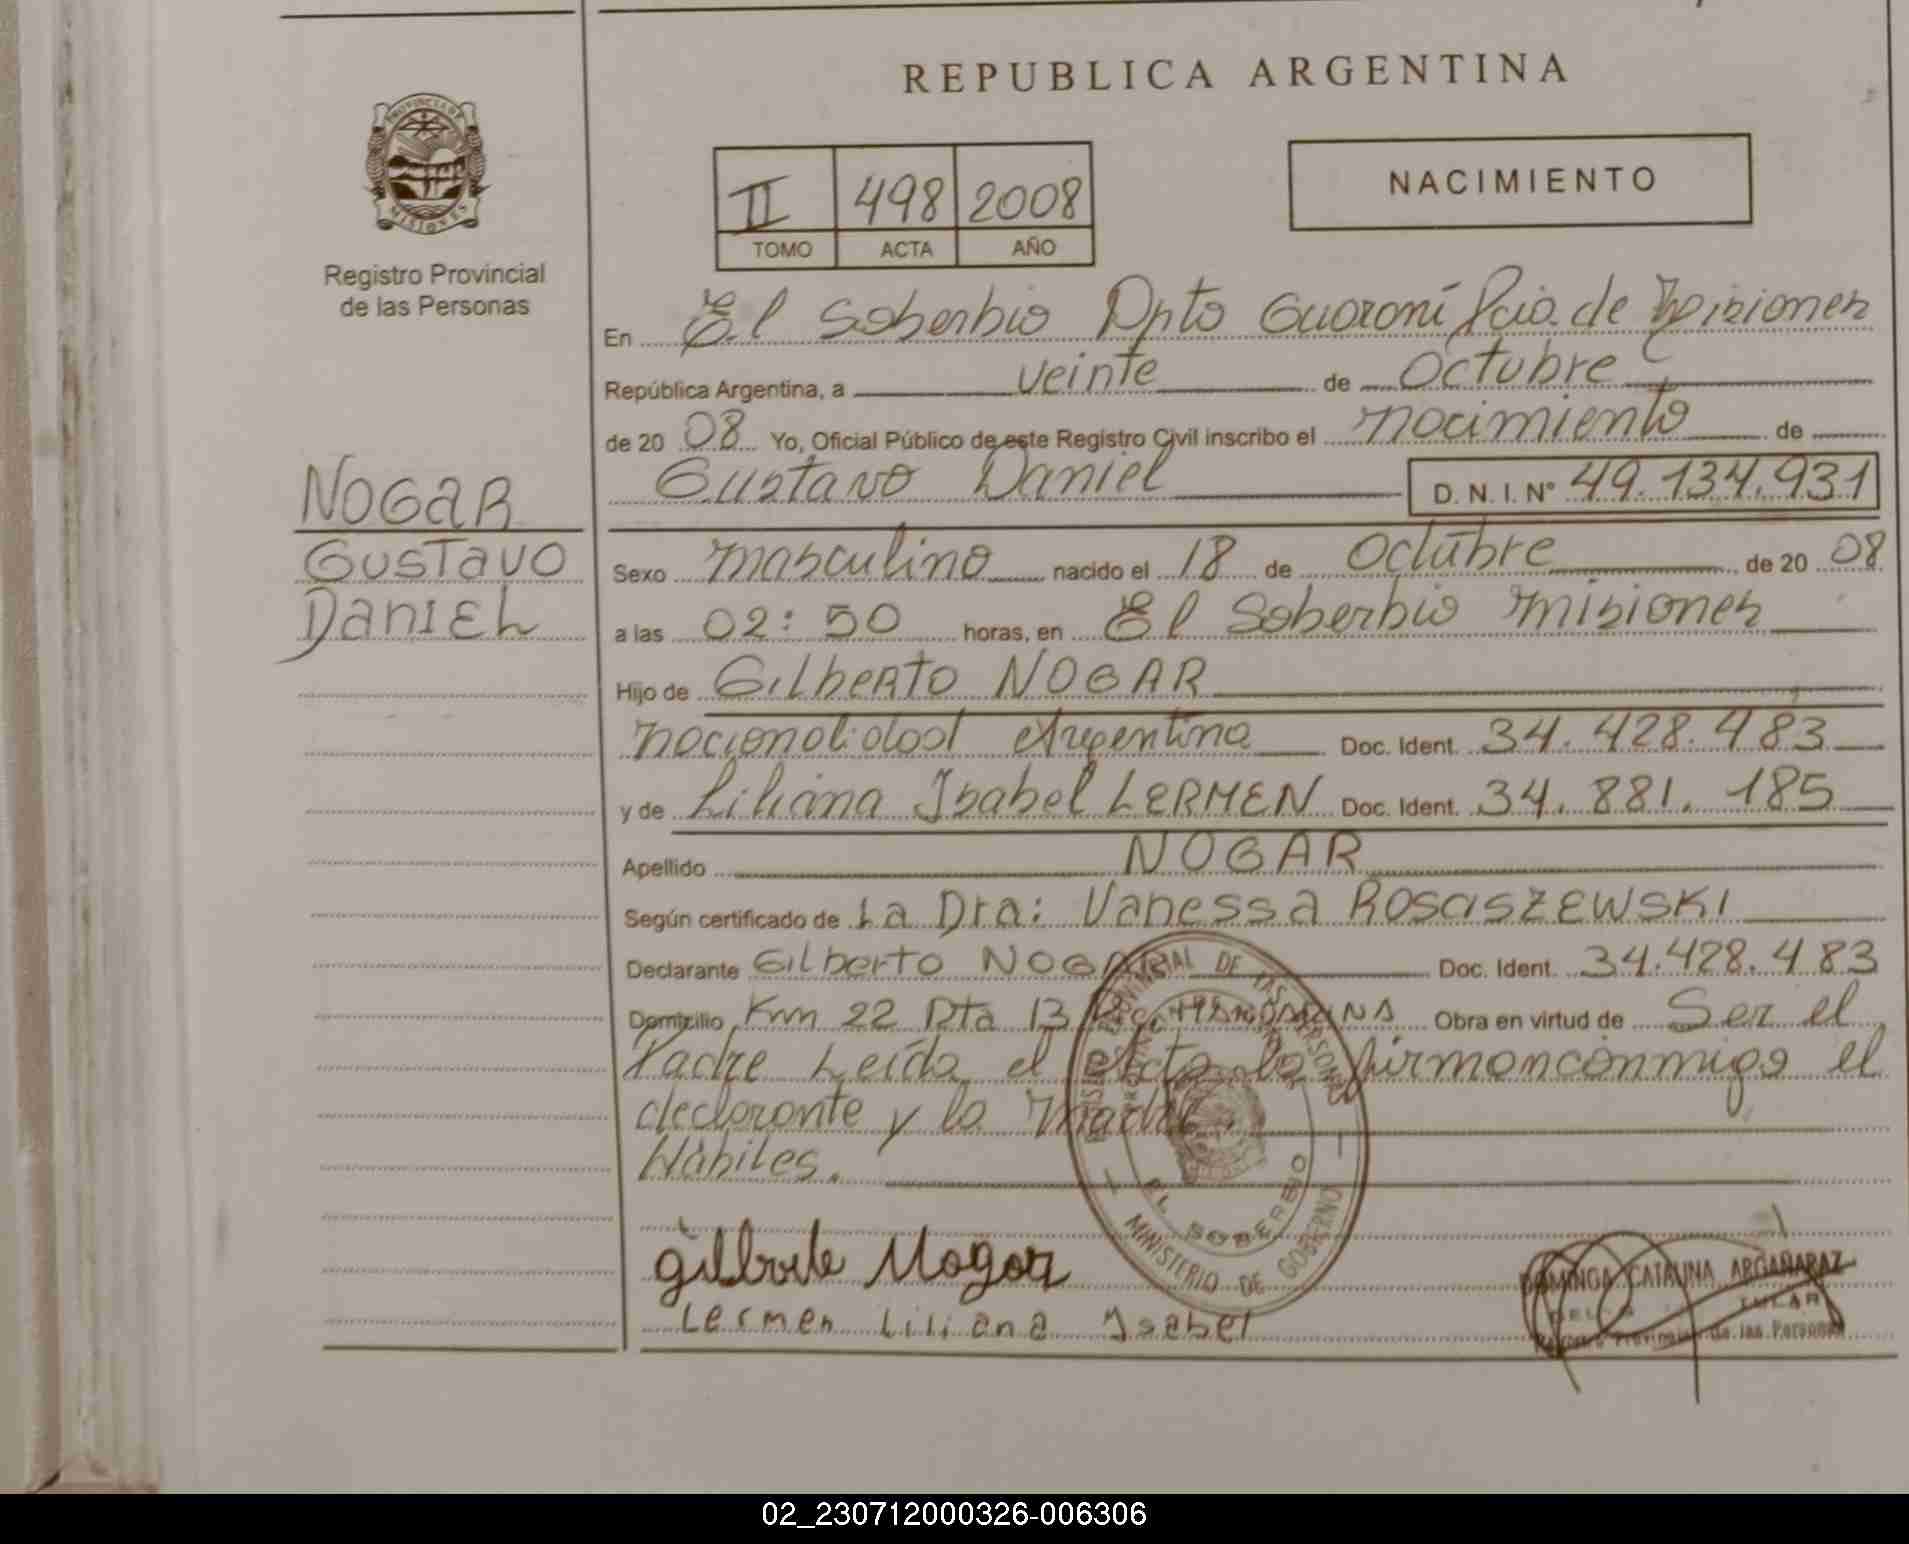 REPUBLICA ARGENTINA
PROVINCIA DE
MISIONES
Registro Provincial
de las Personas
II 498 2008
TOMO ACTA AÑO
NACIMIENTO
En El Soberbio Dpto Guaraní Pcia. de Misiones
República Argentina, a veinte de Octubre
de 20 08 Yo, Oficial Público de este Registro Civil inscribo el nacimiento de
Gustavo Daniel D. N. I. Nº 49.134.931
NOGAR
GUSTAVO
DANIEL
Sexo masculino nacido el 18 de Octubre de 20 08
a las 02:50 horas, en El Soberbio Misiones
Hijo de Gilberto NOGAR
nacionalidad Argentina Doc. Ident. 34.428.483
y de Liliana Isabel LERMEN Doc. Ident. 34.881.185
Apellido NOGAR
Según certificado de La Dra: Vanessa ROSASZEWSKI
Declarante Gilberto NOGAR Doc. Ident. 34.428.483
Domicilio Km 22 Rta 13 Obra en virtud de Ser el
Padre Leída el Acta la firman conmigo el
declarante y la Madre.
Hábiles.
REGISTRO PROVINCIAL DE LAS PERSONAS
EL SOBERBIO
MINISTERIO DE GOBIERNO
Gilberto Nogar
Lermen Liliana Isabel
DOMINGA CATALINA ARGAÑARAZ
TITULAR
Registro Provincial de las Personas
02_230712000326-006306